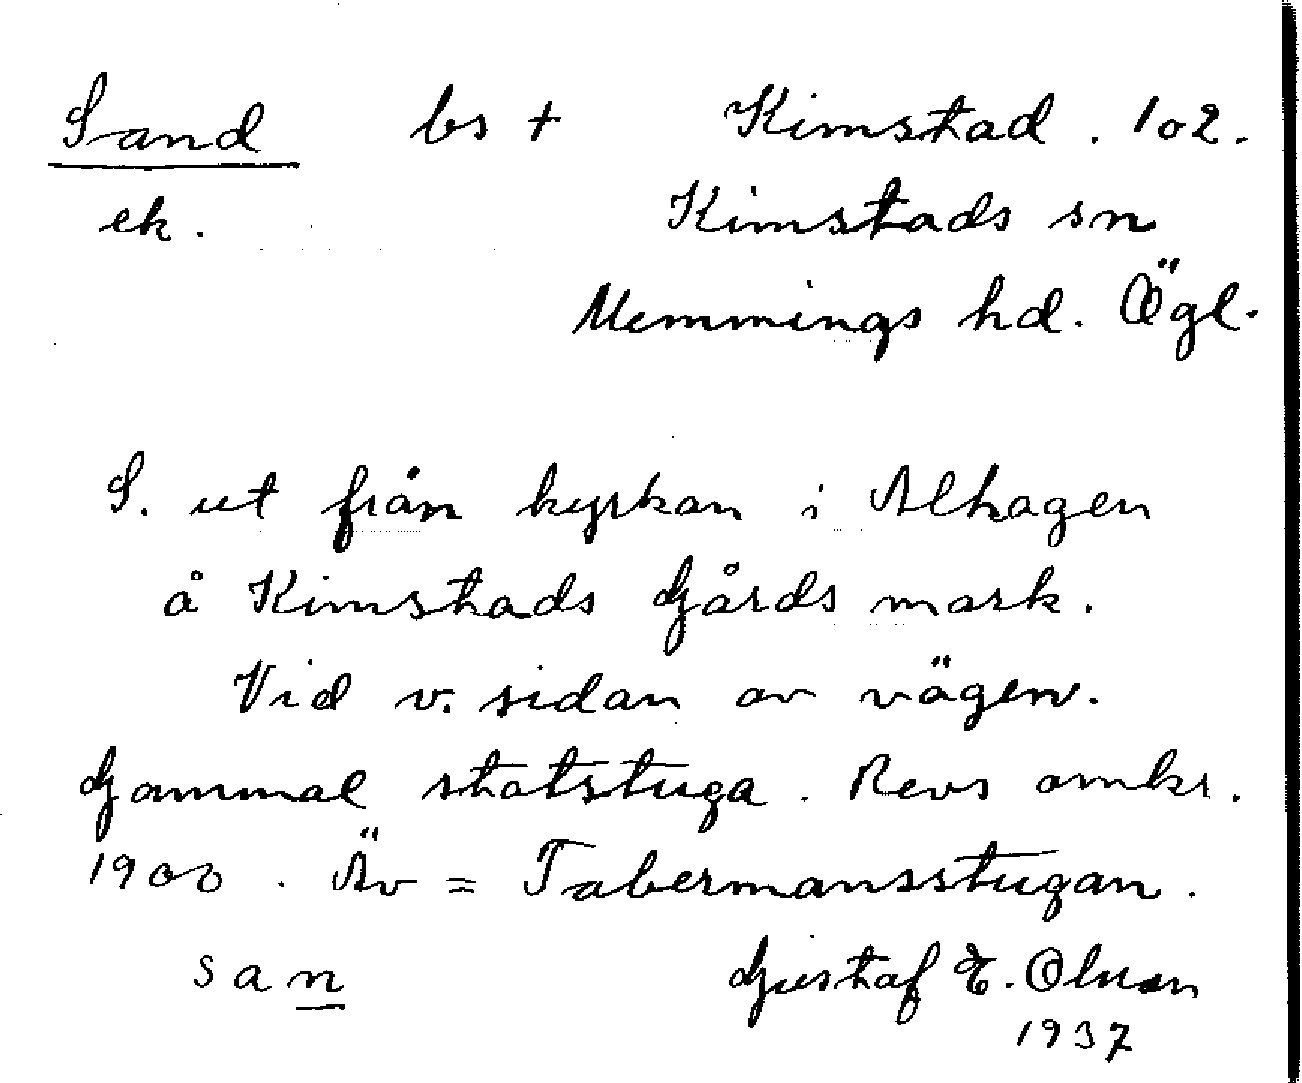 Sand bs + Kimstad. 102.
ek. Kimstads sn
Memmings hd. Ögl.
S. ut från kyrkan i Alhagen
å Kimstads Gårds mark.
Vid v. sidan av vägen.
Gammal statstuga. Revs omkr.
1900. Äv = Tabermansstugan.
san Gustaf E. Olsson
1937